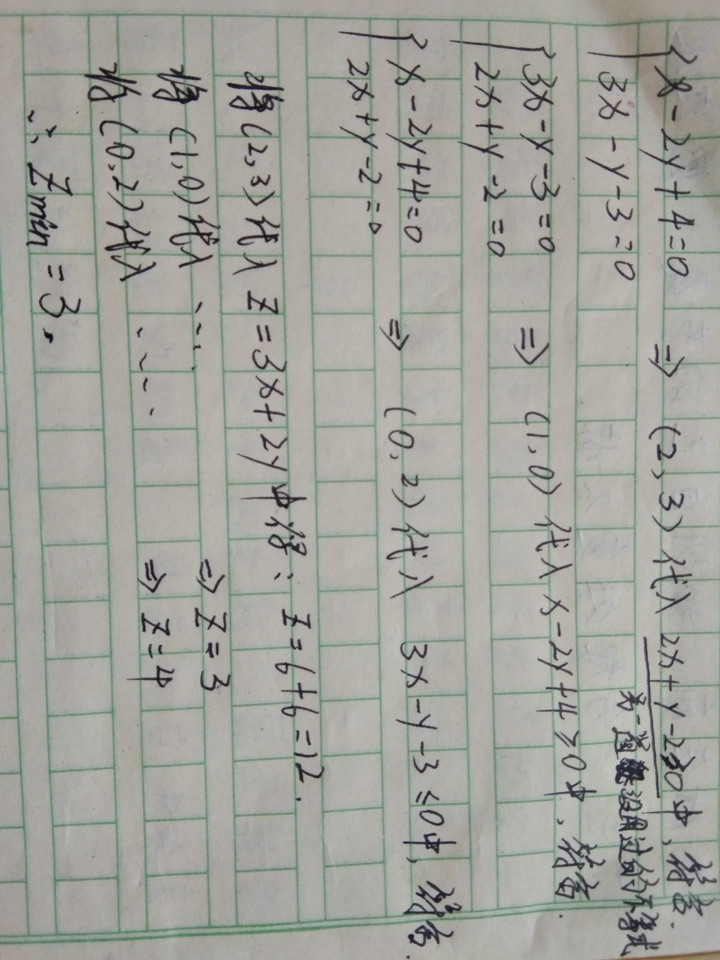 { x-2y+4=0
3x-y-3=0 ⇒ (2,3)代入 2x+y-2≥0中,符合.
第一步没用过的不等式
{ 3x-y-3=0
2x+y-2=0 ⇒ (1,0)代入 x-2y+4≥0中,符合.
{ x-2y+4=0
2x+y-2=0 ⇒ (0,2)代入 3x-y-3≤0中,符合.
将(2,3)代入 z=3x+2y中得: z=6+6=12.
将(1,0)代入 ... ⇒ z=3
将(0,2)代入 .... ⇒ z=4
∴ Zmin=3.